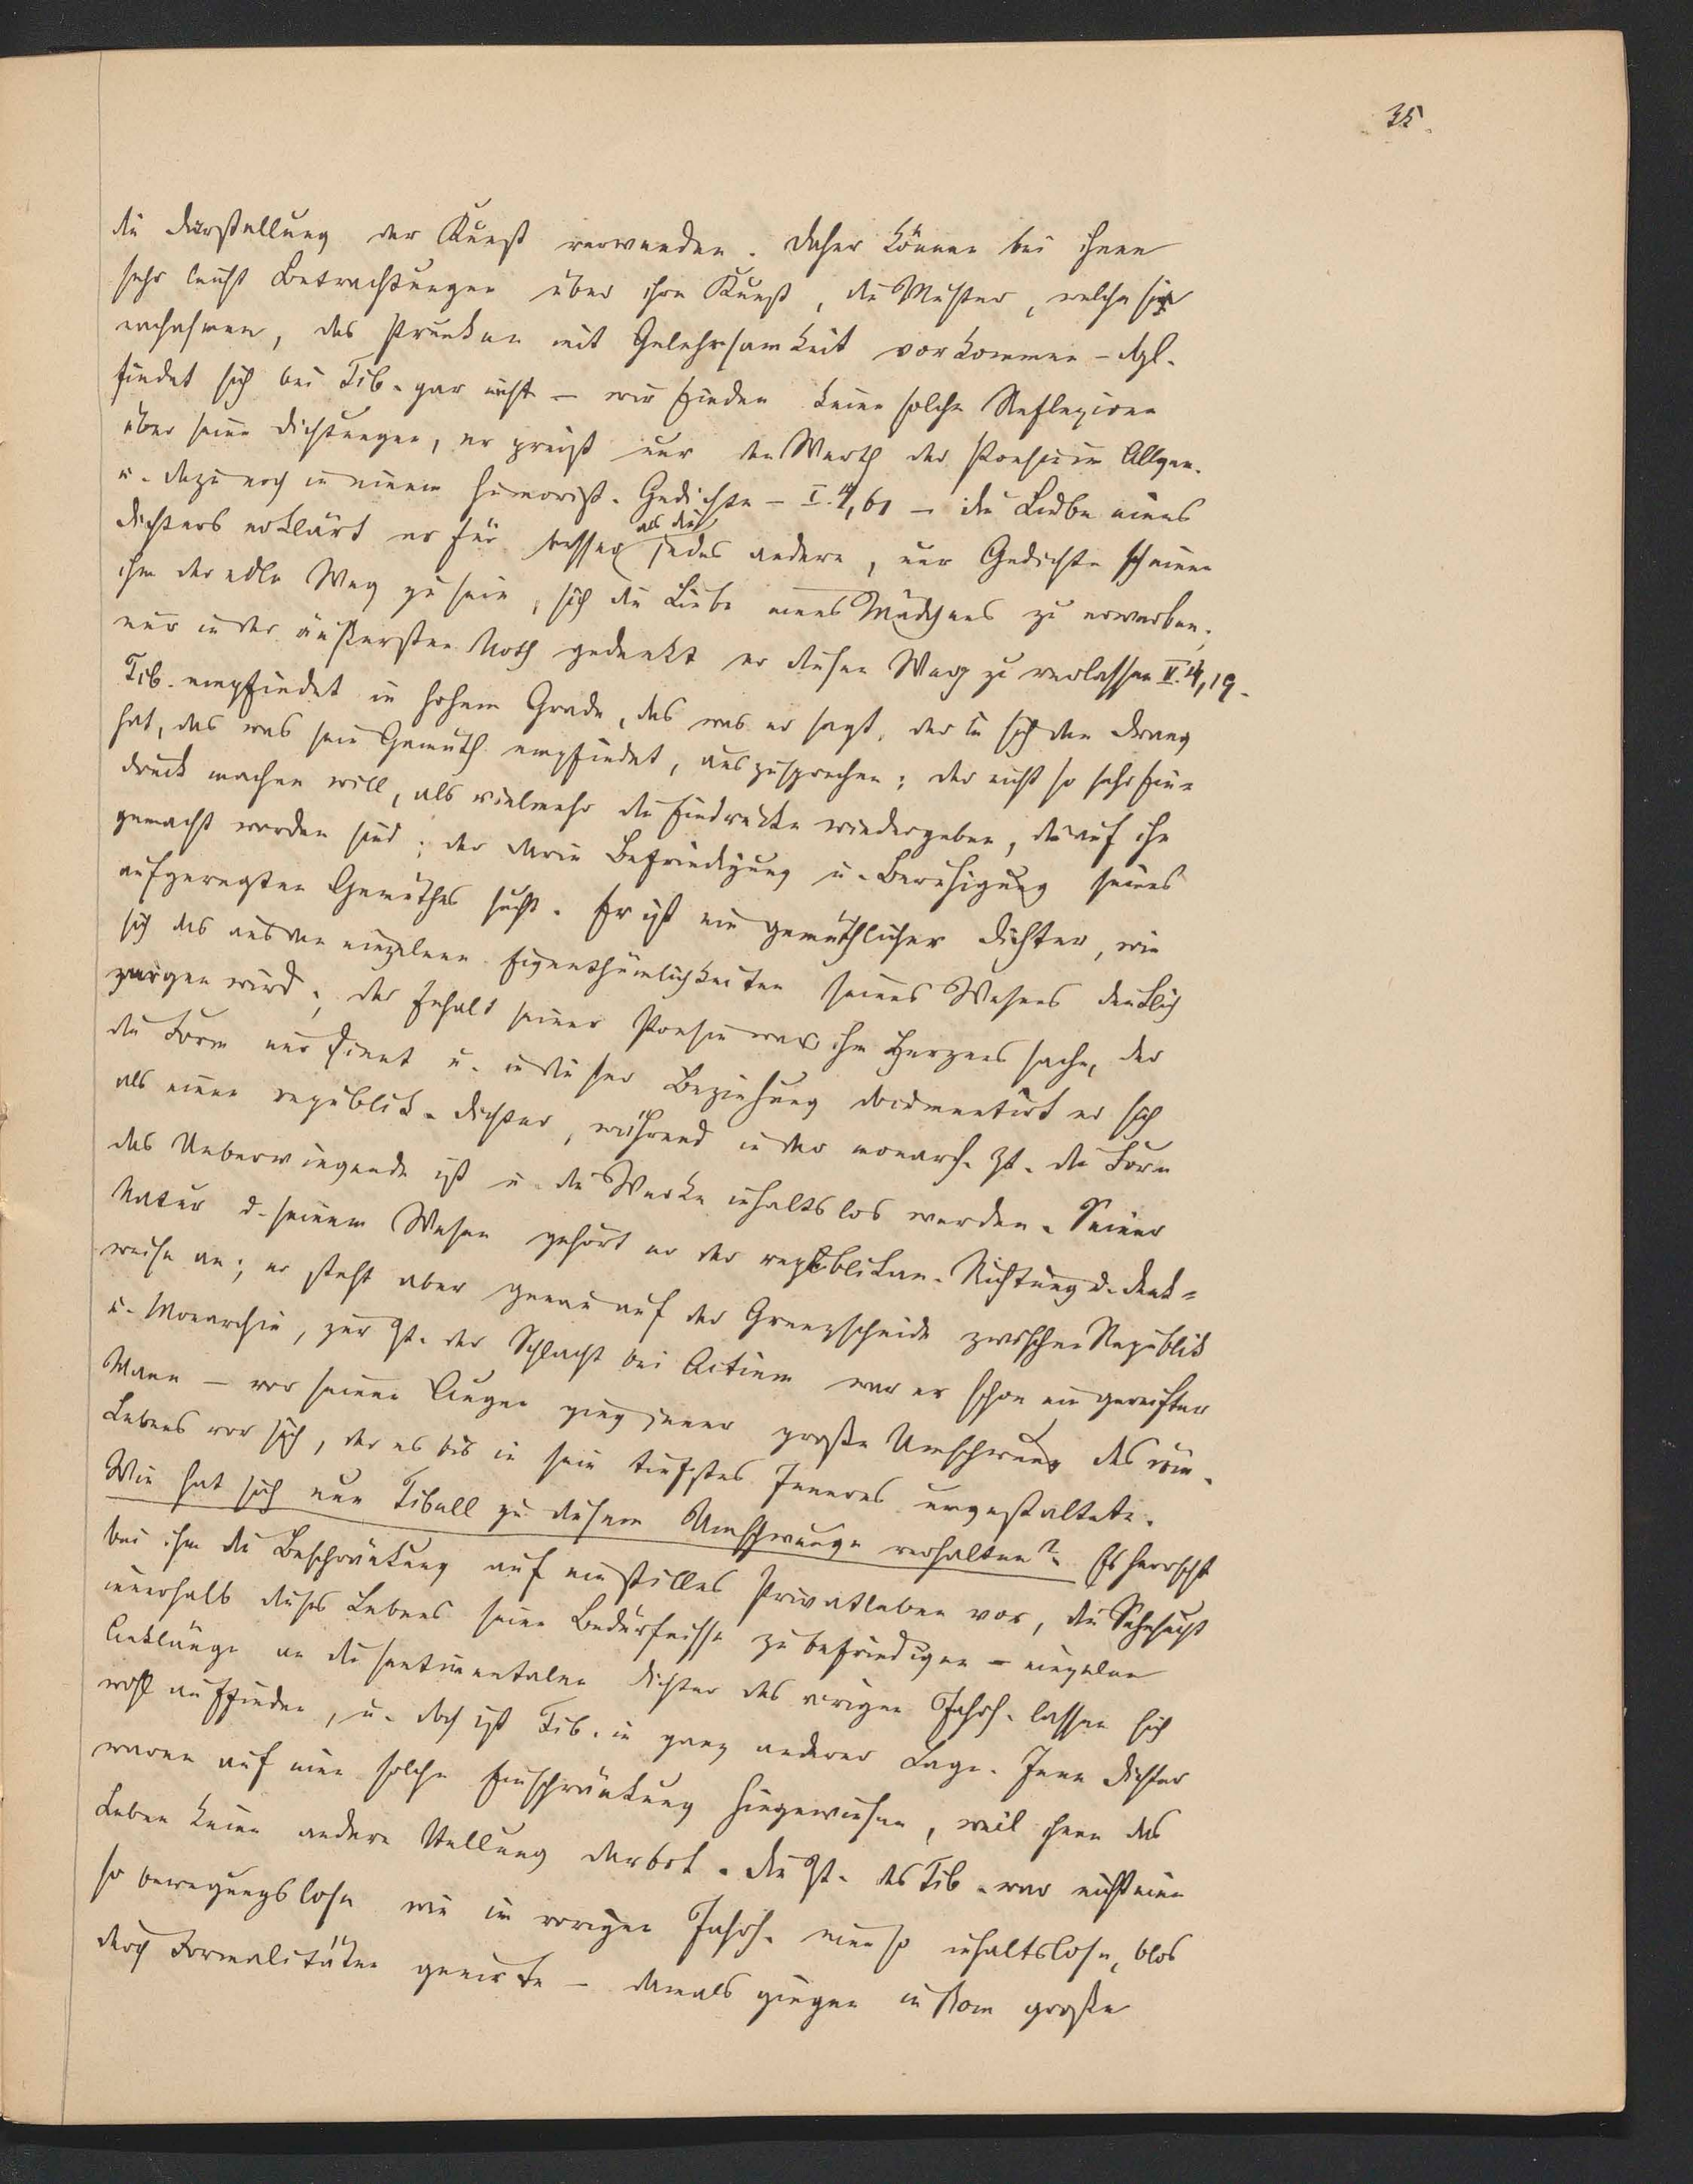 35.
die Darstellung der Kunst verwenden. Daher können bei ihnen
sehr leicht Betrachtungen über ihre Kunst, die Muster, welche sie
nachahmen, das Prunken mit Gelehrsamkeit vorkommen - dgl.
findet sich bei Tib. gar nicht - wir finden keine solche Reflexionen
über seine Dichtungen, er preist nur den Werth der Poesie im Allgem.
u. dazu noch in einem humorist. Gedichte - I. 4, 61 - die Liebe eines
Dichters erklärt er für besser als die jedes andere, nur Gedichte scheinen
ihm der edle Weg zu sein, sich die Liebe eines Mädchens zu erwerben;
nur in der äußersten Noth gedenkt er diesen Weg zu verlassen II. 4, 19.
Tib. empfindet in hohem Grade, das was er sagt, der in sich den Drang
hat, das was sein Gemüth empfindet, auszusprechen; der nicht so sehr Ein=
druck machen will, als vielmehr die Eindrücke wiedergeben, die auf ihn
gemacht worden sind; der darin Befriedigung u. Beruhigung seines
aufgeregten Gemüthes sucht. Er ist ein gemüthlicher Dichter, wie
sich das aus den einzelnen Eigenthümlichkeiten seines Wesens deutlich
zeigen wird; der Inhalt seiner Poesie war ihm Herzenssache, der
die Form nur dient u. in dieser Beziehung documentirt er sich
als einen republik. Dichter, während in der monarch. Zt. die Form
das Ueberwiegende ist u. die Werke inhaltslos werden. Seiner
Natur u. seinem Wesen gehört er der republikan. Richtung u. Denk=
weise an; er steht aber genau auf der Grenzscheide zwischen Republik
u. Monarchie, zur Zt. der Schlacht bei Actium war er schon ein gereifter
Mann - vor seinen Augen ging jener große Umschwung des röm.
Lebens vor sich, der es bis in sein tiefstes Inneres umgestaltete.
Wie hat sich nun Tibull zu diesem Umschwunge verhalten? Es herrscht
bei ihm die Beschränkung auf ein stilles Privatleben vor, die Sehnsucht
innerhalb dieses Lebens seine Bedürfnisse zu befriedigen - einzelne
Anklänge an die sentimentalen Dichter des vorigen Jahrh. lassen sich
wohl auffinden, u. doch ist Tib. in ganz anderer Lage. Jene Dichter
waren auf eine solche Einschränkung hingewiesen, weil ihnen das
Leben keine andere Stellung darbot. Die Zt. des Tib. war nicht eine
so bewegungslose wie im vorigen Jahrh. eine so inhaltslose, blos
durch Formalitäten geeinte - damals gingen in Rom große